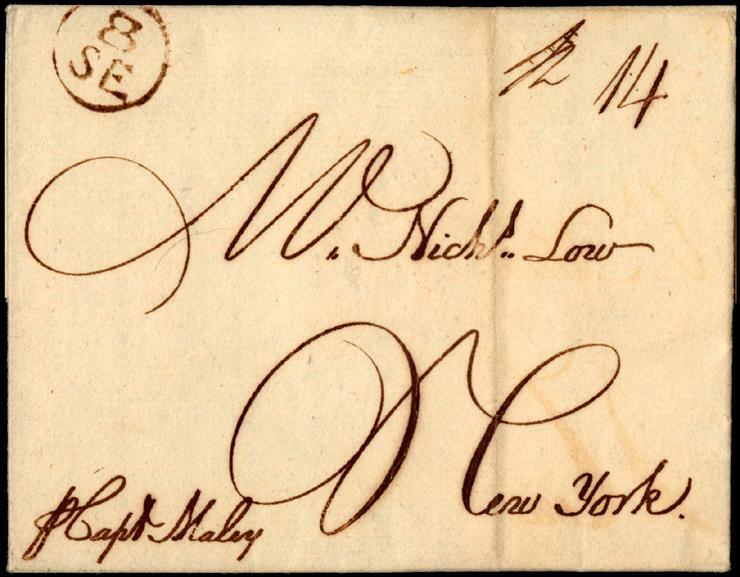 8
SE
14
Mr. Nichs. Low
New York.
Capt Maley